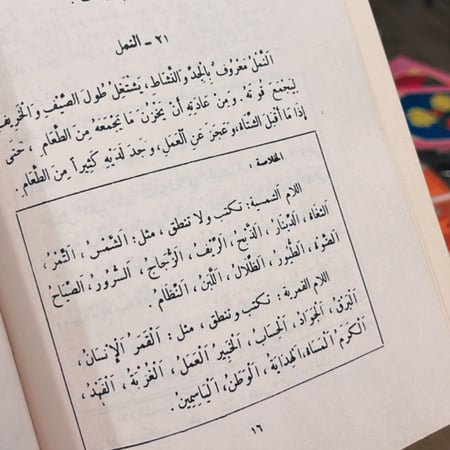 ٢١ - النمل
النَّمْلُ مَعْرُوفٌ بِالْجِدِّ وَالنَّشَاطِ، يَشْتَغِلُ طُولَ الصَّيْفِ وَالْخَرِيفِ
لِيَجْمَعَ قُوتَهُ. وَمِنْ عَادَتِهِ أَنْ يَخْزُنَ مَا يَجْمَعُهُ مِنَ الطَّعَامِ، حَتَّى
إِذَا مَا أَقْبَلَ الشِّتَاءُ، وَعَجَزَ عَنِ الْعَمَلِ، وَجَدَ لَدَيْهِ كَثِيراً مِنَ الطَّعَامِ.
الخلاصة :
اللام الشمسية : تكتب ولا تنطق ، مثل : الشَّمْسُ ، الثَّمَرُ ،
الدِّينَارُ ، الذَّبْحُ ، الرِّيفُ ، الزُّجَاجُ ، السُّرُورُ ، الصَّبَاحُ
الضَّوْءُ ، الطُّيُورُ ، الظِّلَالُ ، اللَّبَنُ ، النِّظَامُ .
اللام القمرية : تكتب وتنطق ، مثل : الْقَمَرُ الْإِنْسَانُ ،
الْبَرْقُ ، الْجَوَادُ ، الْحِسَابُ ، الْخَبِيرُ الْعَمَلُ ، الْغُرْبَةُ ، الْفَهْدُ ،
الْكَرَمُ الْمَسَاءُ ، الْهِدَايَةُ ، الْوَطَنُ ، الْيَاسَمِينُ .
١٦